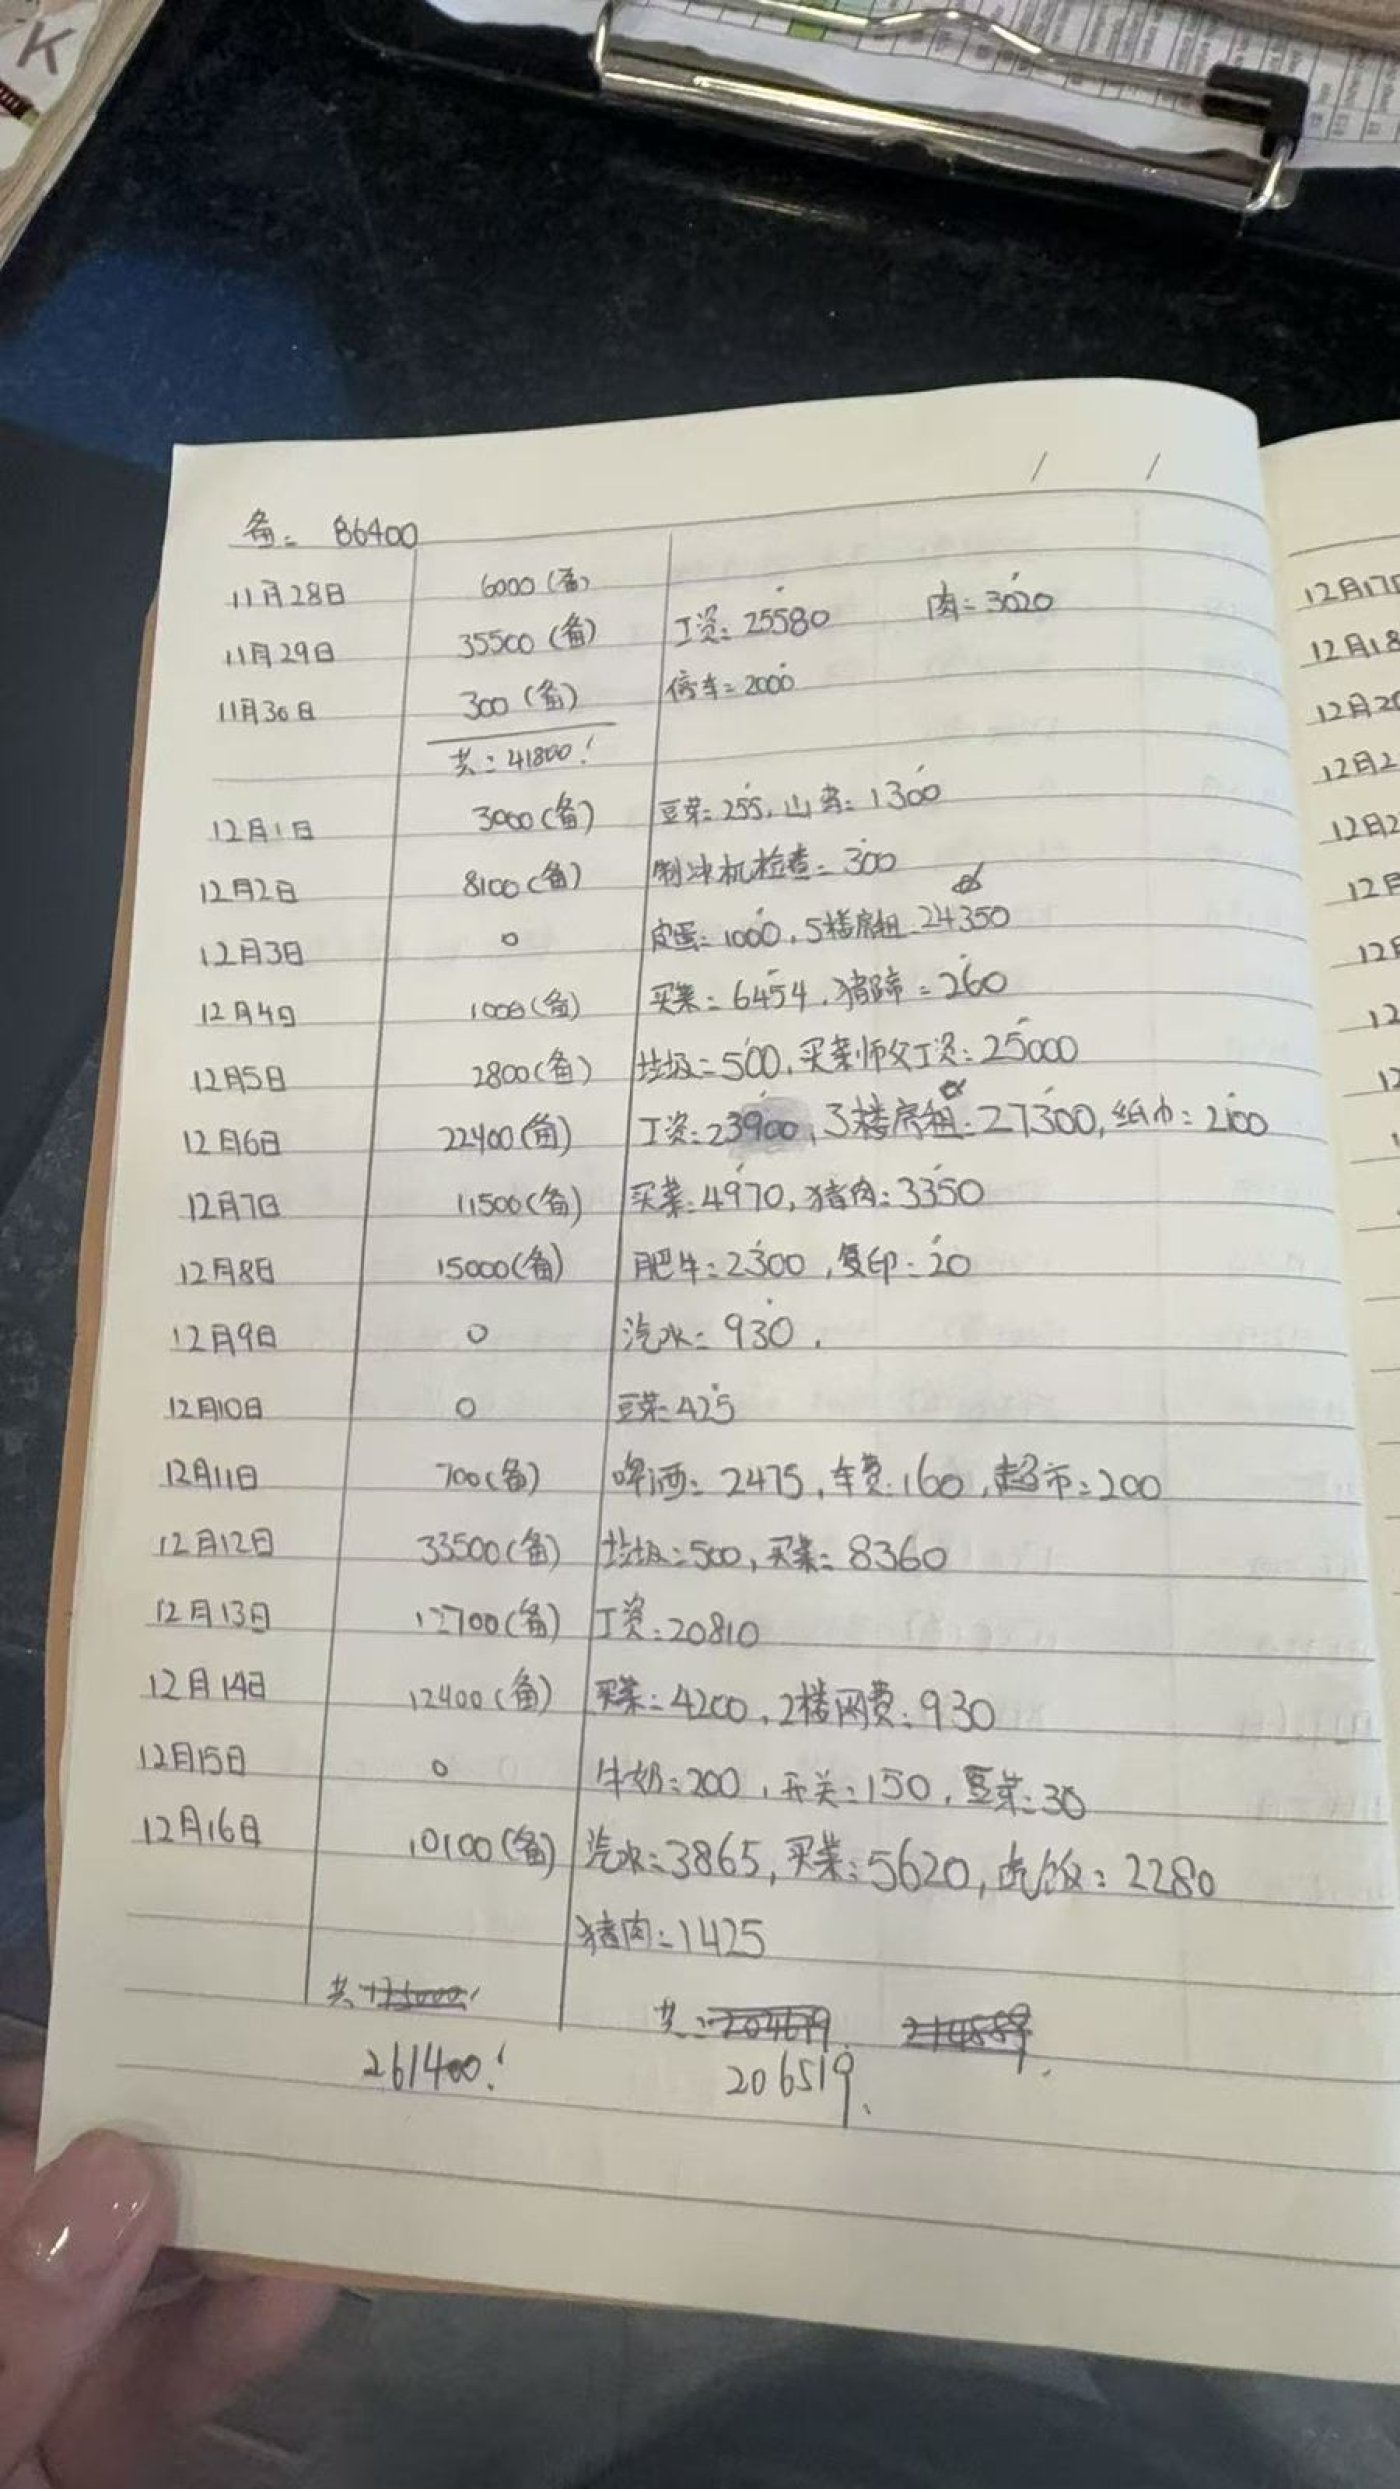 K
备: 86400
11月28日 6000(备)
11月29日 35500(备) 工资: 25580 肉: 3020
11月30日 300(备) 停车: 2000
共: 41800!
12月1日 3000(备) 豆芽: 255, 山药: 1300
12月2日 8100(备) 制冰机检查: 300
12月3日 0 皮蛋: 1000, 5楼房租: 24350
12月4日 1000(备) 买菜: 6454, 猪蹄: 260
12月5日 2800(备) 垃圾: 500, 买菜师父工资: 25000
12月6日 22400(备) 工资: 23900, 3楼房租: 27300, 纸巾: 2100
12月7日 11500(备) 买菜: 4970, 猪肉: 3350
12月8日 15000(备) 肥牛: 2300, 复印: 20
12月9日 0 汽水: 930,
12月10日 0 豆芽: 425
12月11日 700(备) 啤酒: 2475, 车费: 160, 超市: 200
12月12日 33500(备) 垃圾: 500, 买菜: 8360
12月13日 12700(备) 工资: 20810
12月14日 12400(备) 买菜: 4200, 2楼网费: 930
12月15日 0 牛奶: 200, 开关: 150, 豆芽: 30
12月16日 10100(备) 汽水: 3865, 买菜: 5620, 吃饭: 2280
猪肉: 1425
共: 共:
261400! 206519.
12月17日
12月18
12月20
12月2
12月2
12月
12月
12
12